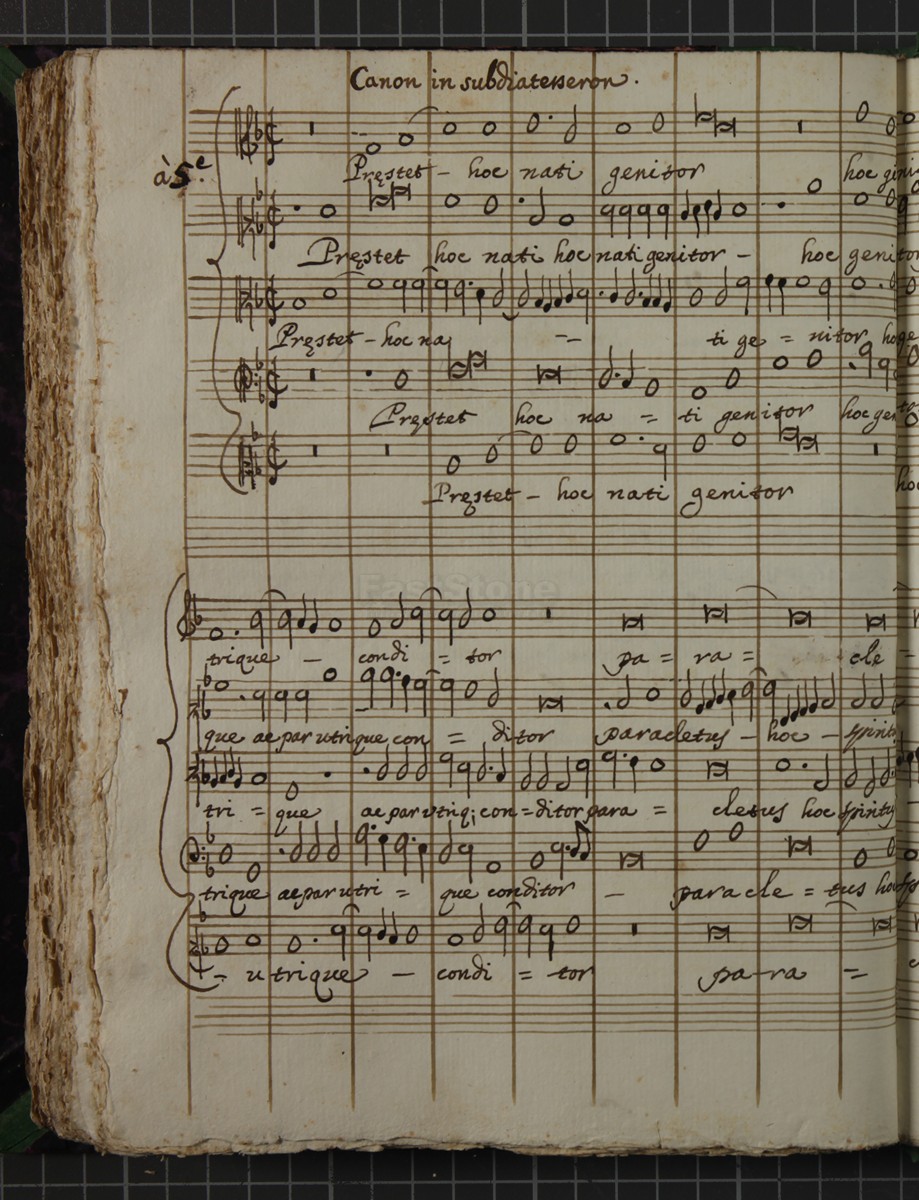 Canon in subdiatesseron.
à 5.e
Pręstet - hoc nati genitor hoc geni
Pręstet hoc nati hoc nati genitor - hoc genitor
Pręstet - hoc na - ti ge = nitor
Pręstet hoc na = ti genitor hoc gen
Pręstet - hoc nati genitor
FastStone
trique - condi = tor pa = ra = cle
que ac par utrique con = ditor paracletus - hoc - spirit
tri = que ac par utriq; con = ditor para = cletus hoc spiritus
trique ac par utri = que conditor - paracle = tus
- utrique - condi = tor pa-ra =